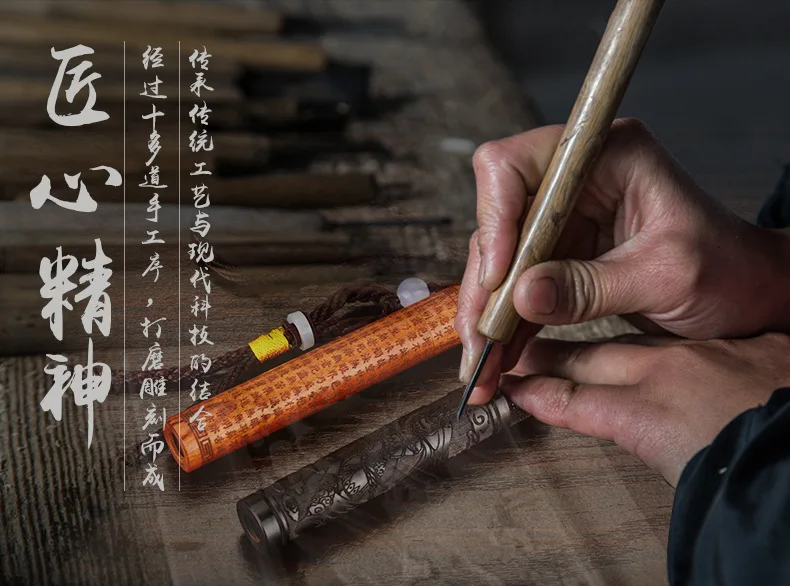 传承传统工艺与现代科技的结合
经过十多道手工序，打磨雕刻而成
匠心精神